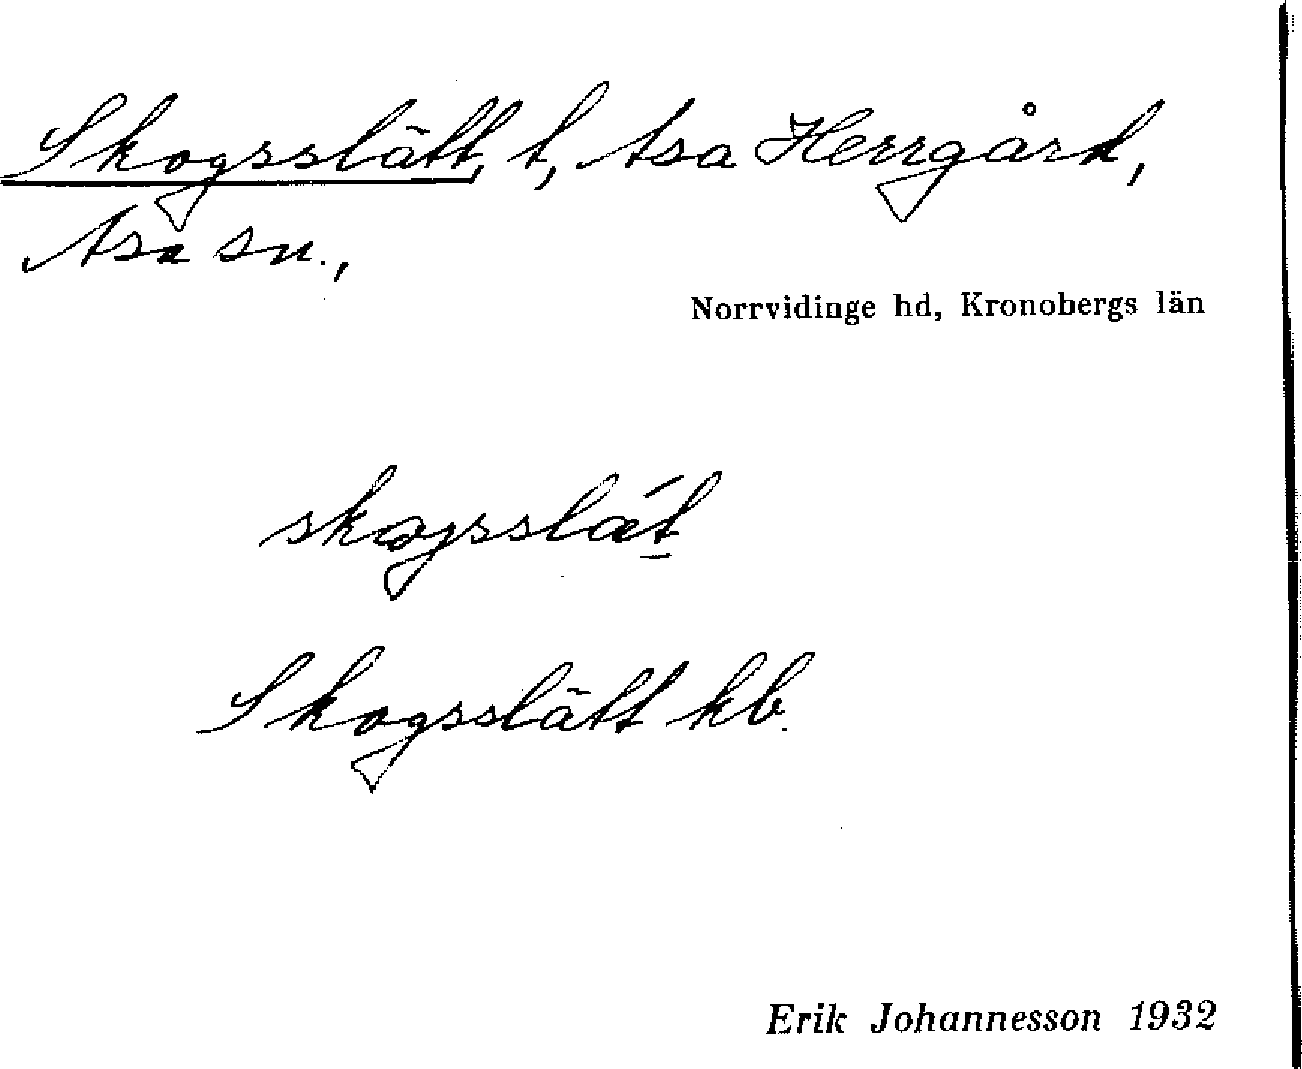 Skogsslätt, t, Asa Herrgård,
Asa sn.,
Norrvidinge hd, Kronobergs län
Skogsslätt kb.
Erik Johannesson 1932